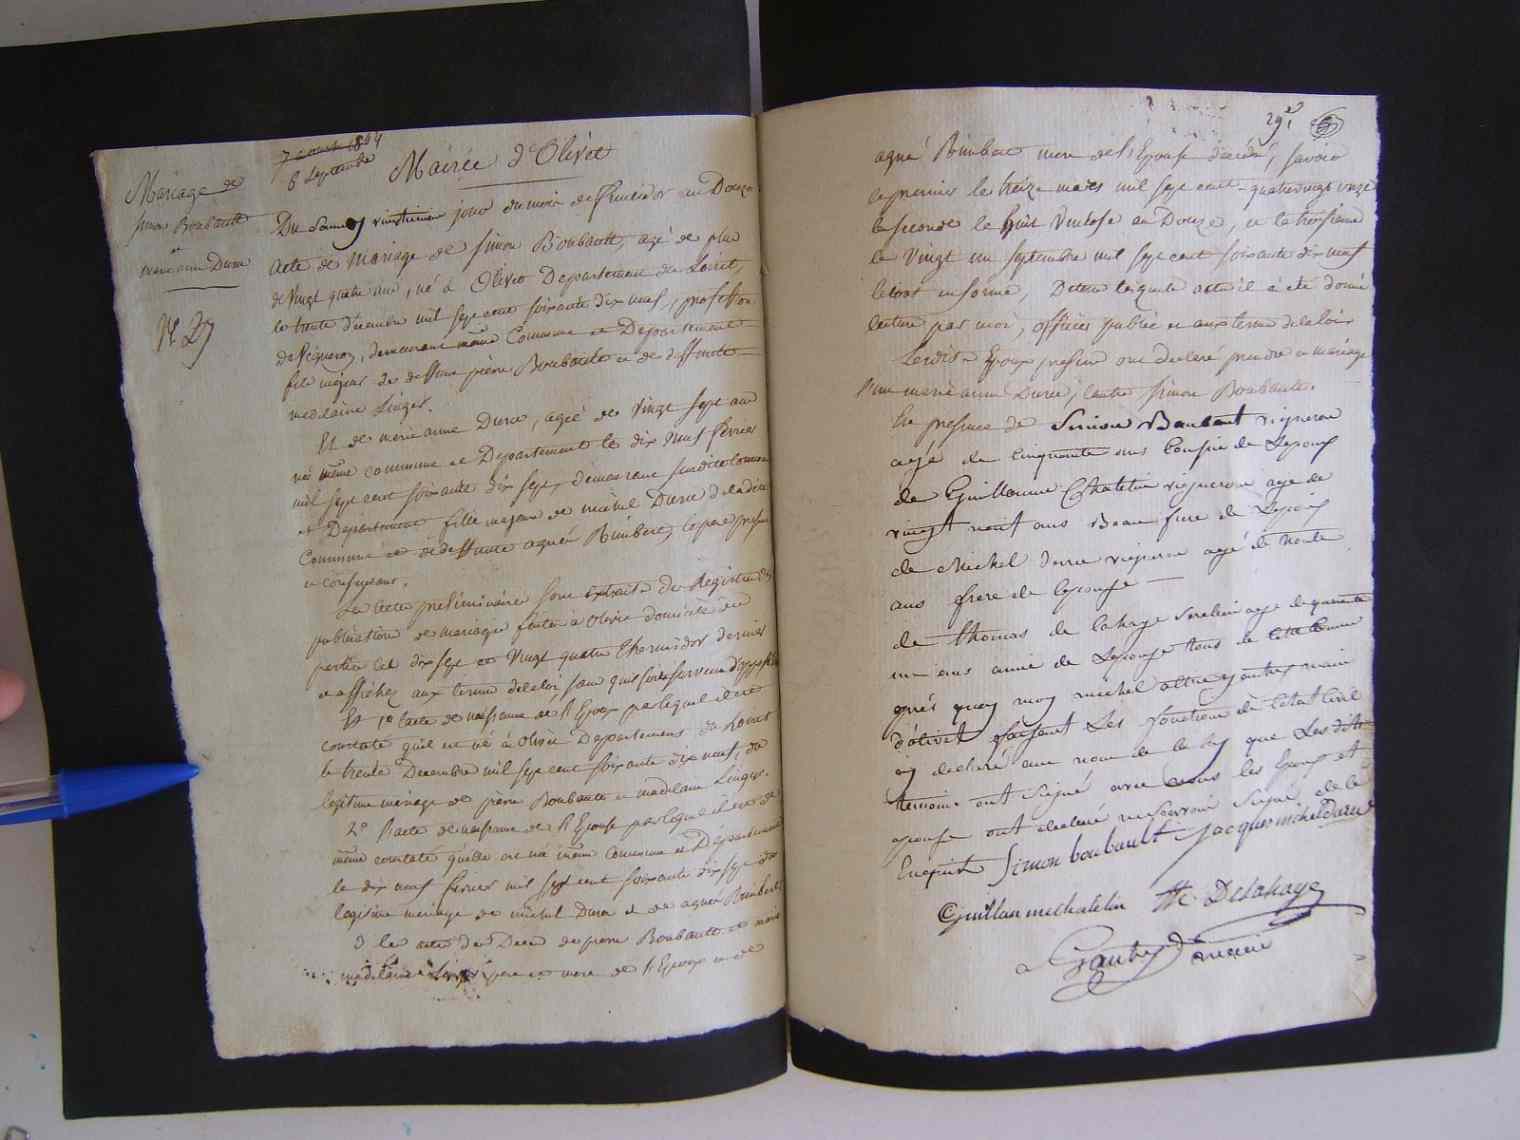 7 aoust 1804
6 Septembre
Mairie d'Olivet
Mariage de
simon Boubault
et
marie anne Duru
N. 29
Du Samedy vingtieme jour du mois de fructidor an Douze
acte de mariage de simon Boubault, agé de plus
de vingt quatre ans, né à Olivet Departement du Loiret,
le trente décembre mil sept cent soixante dix neuf, profession
de Vigneron, demeurant même Commune et Departement
fils majeur de deffunt pierre Boubault et de deffunte
madelaine Linger.
Et de marie anne Duru, agée de vingt sept ans
née même commune et Departement le dix neuf fevrier
mil sept cent soixante dix sept, demeurant susdite Commune
et Departement fille majeure de michel Duru de ladite
Commune et de deffunte agnés Rimbert, le pere present
et consentant.
Les actes preliminaires sont extraits des Registres des
publications de mariages faites à Olivet domicile des
parties les dix sept et vingt quatre thermidor dernier
et affichez aux termes de la loi, sans qu'il soit survenu d'opposition
Et 1o l'acte de naissance de l'Epoux par lequel il est
constaté qu'il est né à Olivet Departement du Loiret
le trente Decembre mil sept cent soixante dix neuf, du
legitime mariage de pierre Boubault et madelaine Linger.
2o l'acte de naissance de l'Epouse par lequel il est de
même constaté qu'elle est née même Commune et Departement
le dix neuf fevrier mil sept cent soixante dix sept du
legitime mariage de michel Duru et de agnés Rimbert
3 les actes de Deces de pierre Boubault et
madelaine Linger pere et mere de l'Epoux et de
291
agnés Rimbert mere de l'Epouse decedés, savoir
le premier le treize mars mil sept cent quatrevingt onze
la seconde le huit Ventose an Douze, et la troisieme
le vingt un septembre mil sept cent soixante dix neuf
le tout en forme, De tous lesquels actes il a été donné
lecture par moi, officier public et aux termes de la loi
Lesdits Epoux presens ont declaré prendre en mariage
l'un marie anne Durue, l'autre Simon Boubault.
En presence de Simon Baubaut vigneron
agé de cinquante ans Cousin de Lepoux
de Guillaume Chatelin vigneron age de
vingt neuf ans Beau frere de Lepoux
de Michel durue vigneron agé de trente
ans frere de Lepouse
de thomas de lahaye agé de quarante
un ans amie de Lepouse tous de cette Commune
aprés quoy moy michel altre gautry maire
d'olivet faisant Les fonctions de Letat Civil
ay declaré aux nom de la loy que Les dits
temoins ont signé avec nous les Epoux et
epouse ont declaré ne savoir signé de ce
Enquis Simon boubault Jacques michel durue
Guillaumechatelin Th Delahaye
Gautry maire